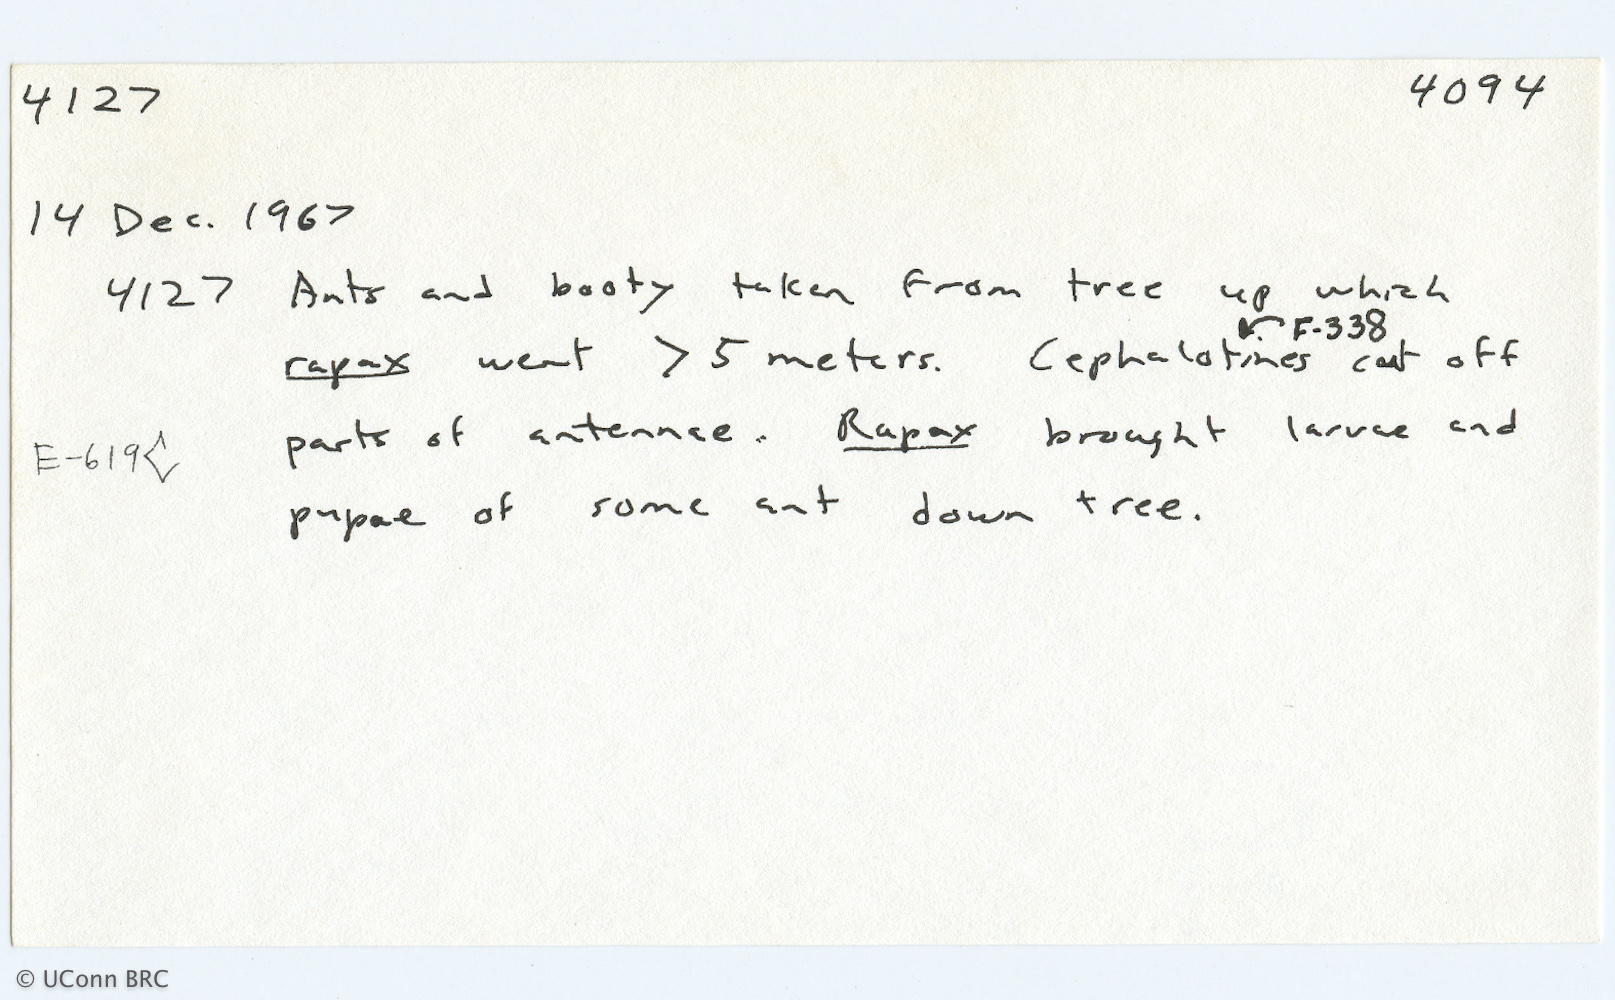 4127 4094
14 Dec. 1967
4127 Ants and booty taken from tree up which
F-338
rapax went > 5 meters. Cephalotines cut off
E-619 parts of antennae. Rapax brought larvae and
pupae of some ant down tree.
© UConn BRC